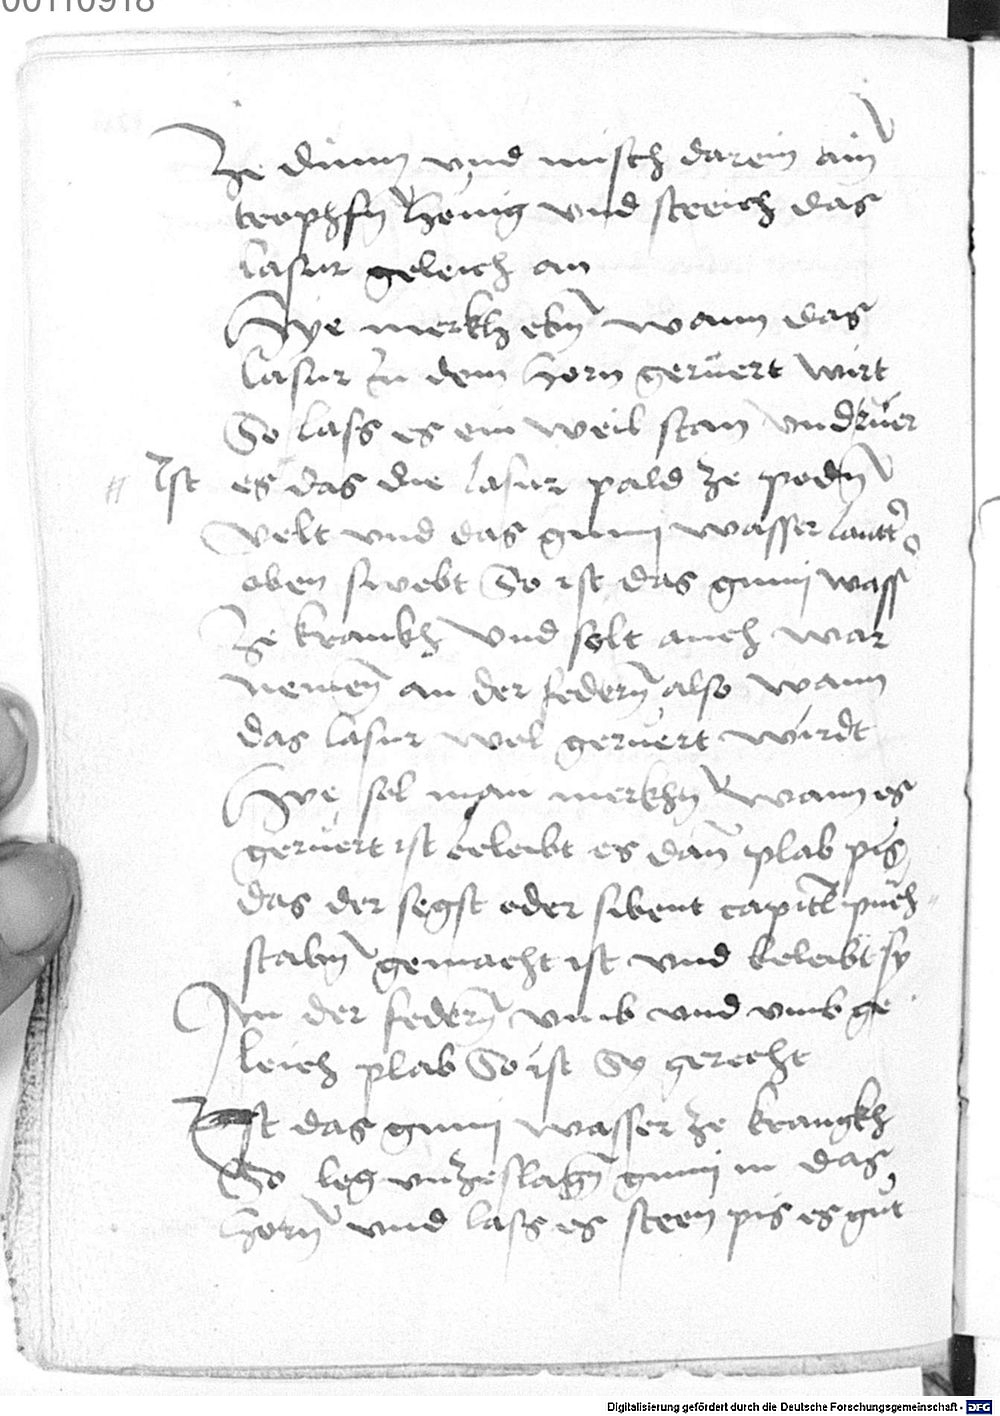 00110918
Ze dunn vnd misch darein ain
trophfn honig vnd streich das
lasur geleich an
Hye merkh ebn wann das
lasur in dem horn gerüert wirt
So lass es ein weil stan vnd rüer
Ist es das die lasur pald ze podn
velt vnd das gumi wasser lautter
oben swebt So ist das gumi wasser
Ze krankh vnd solt auch war
nemen an der federn also wann
das lasur wol gerüert wirdt
Hye sol man merkhn wann es
gerüert ist beleibt es dan plab pis
das der segst oder sibent capitl puch
stabn gemacht ist vnd beleibt sy
In der federn vmb vnd vmb ge
leich plab So ist Sy gerecht
Ist das gumi wasser ze krangkh
So leg vnzeslagn gumi in das
horn vnd lass es steen pis es gut
Digitalisierung gefördert durch die Deutsche Forschungsgemeinschaft - DFG